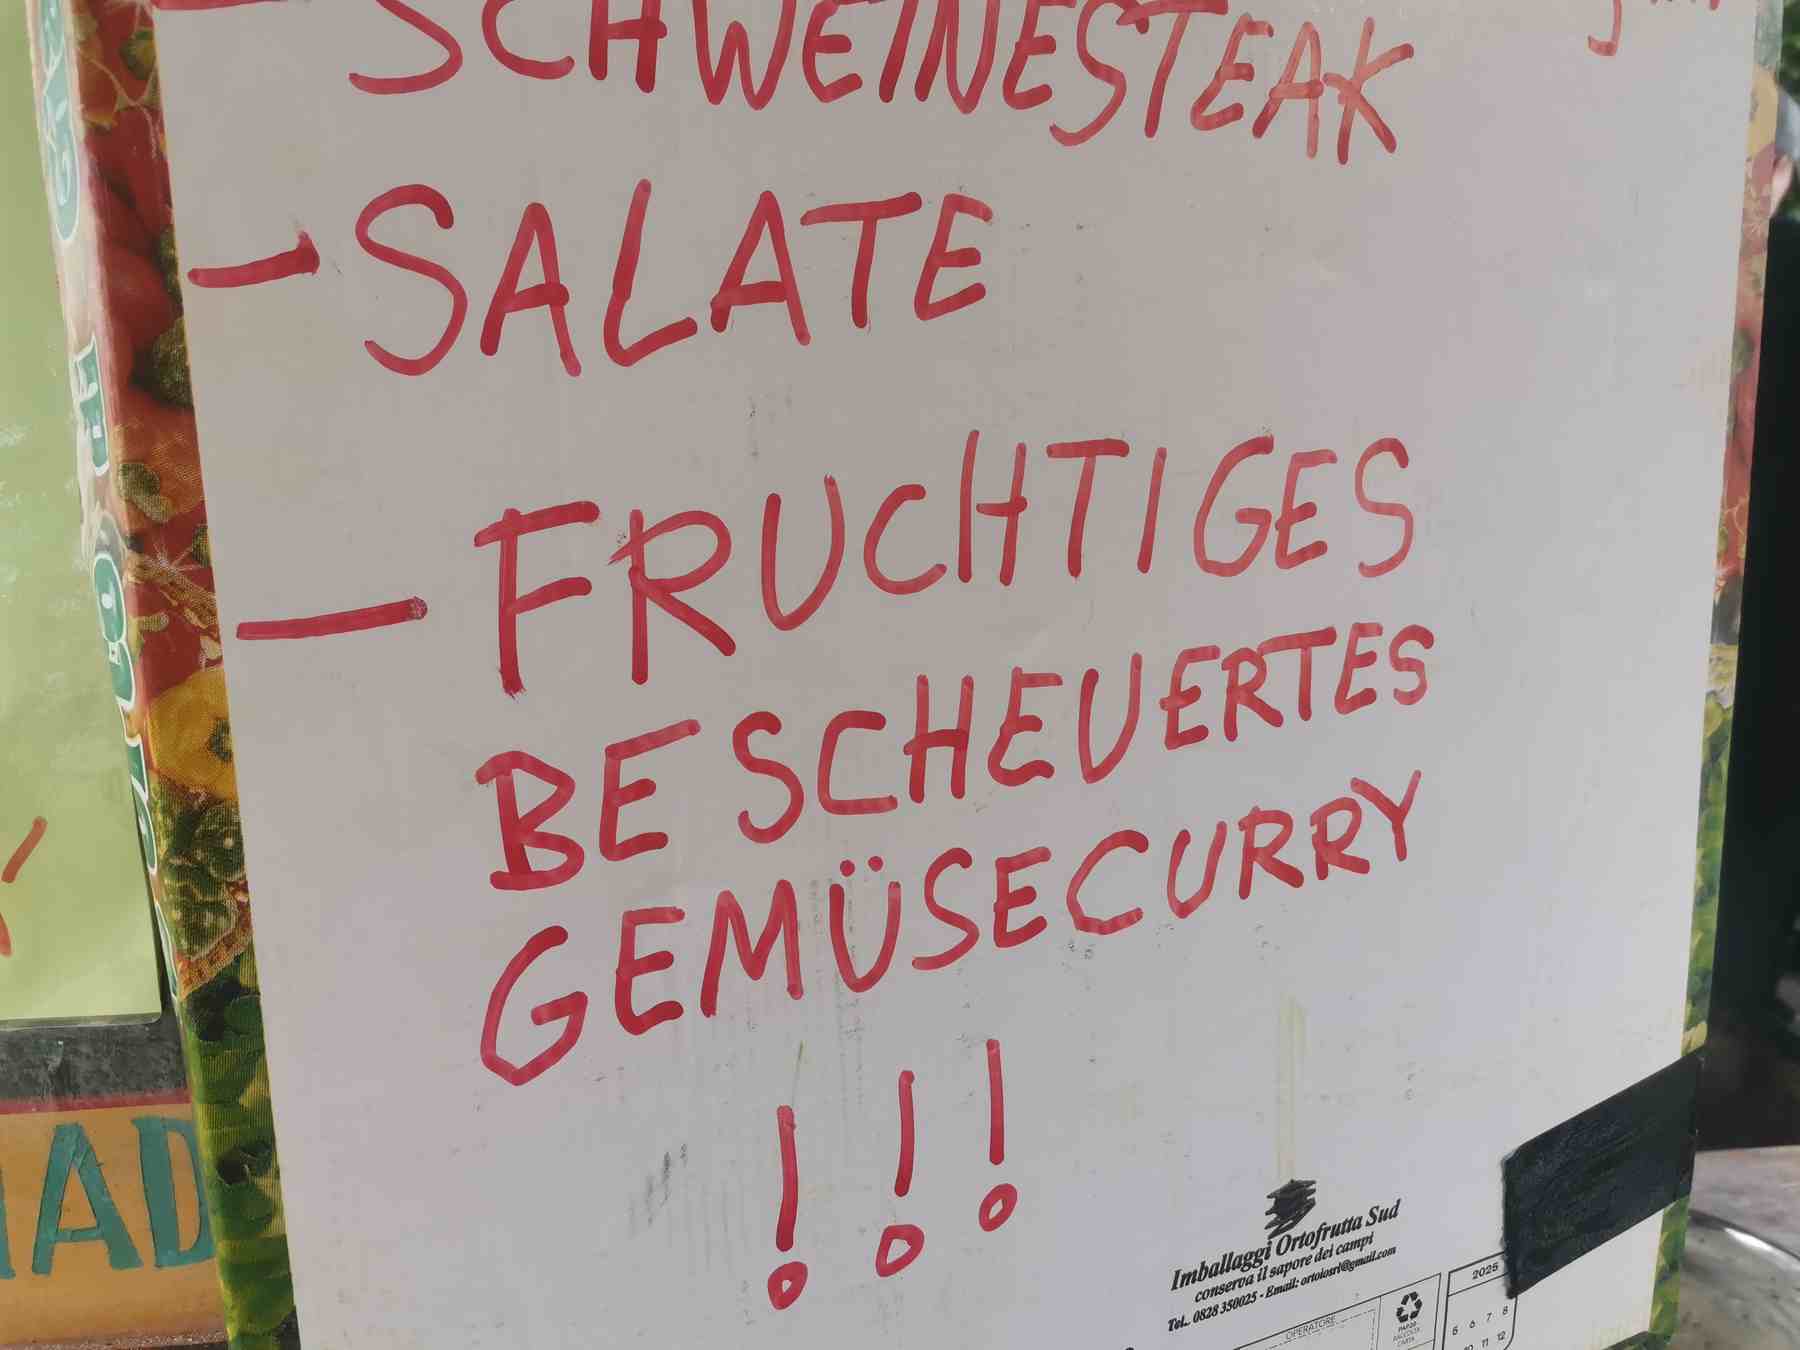 - SCHWEINESTEAK
- SALATE
- FRUCHTIGES
BESCHEUERTES
GEMÜSECURRY
!!!
Imballaggi Ortofrutta Sud
conserva il sapore dei campi
Tel.. 0828 350025 - Email: ortoiosrl@gmail.com
OPERATORE
PAP20
RACCOLTA
CARTA
2025
5 6 7 8
10 11 12